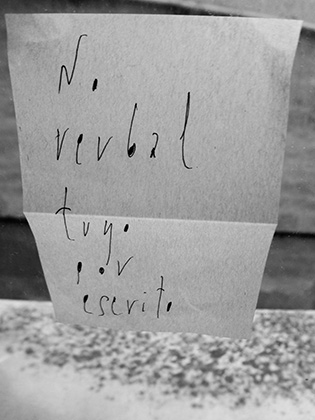 No
verbal
tuyo
por
escrito